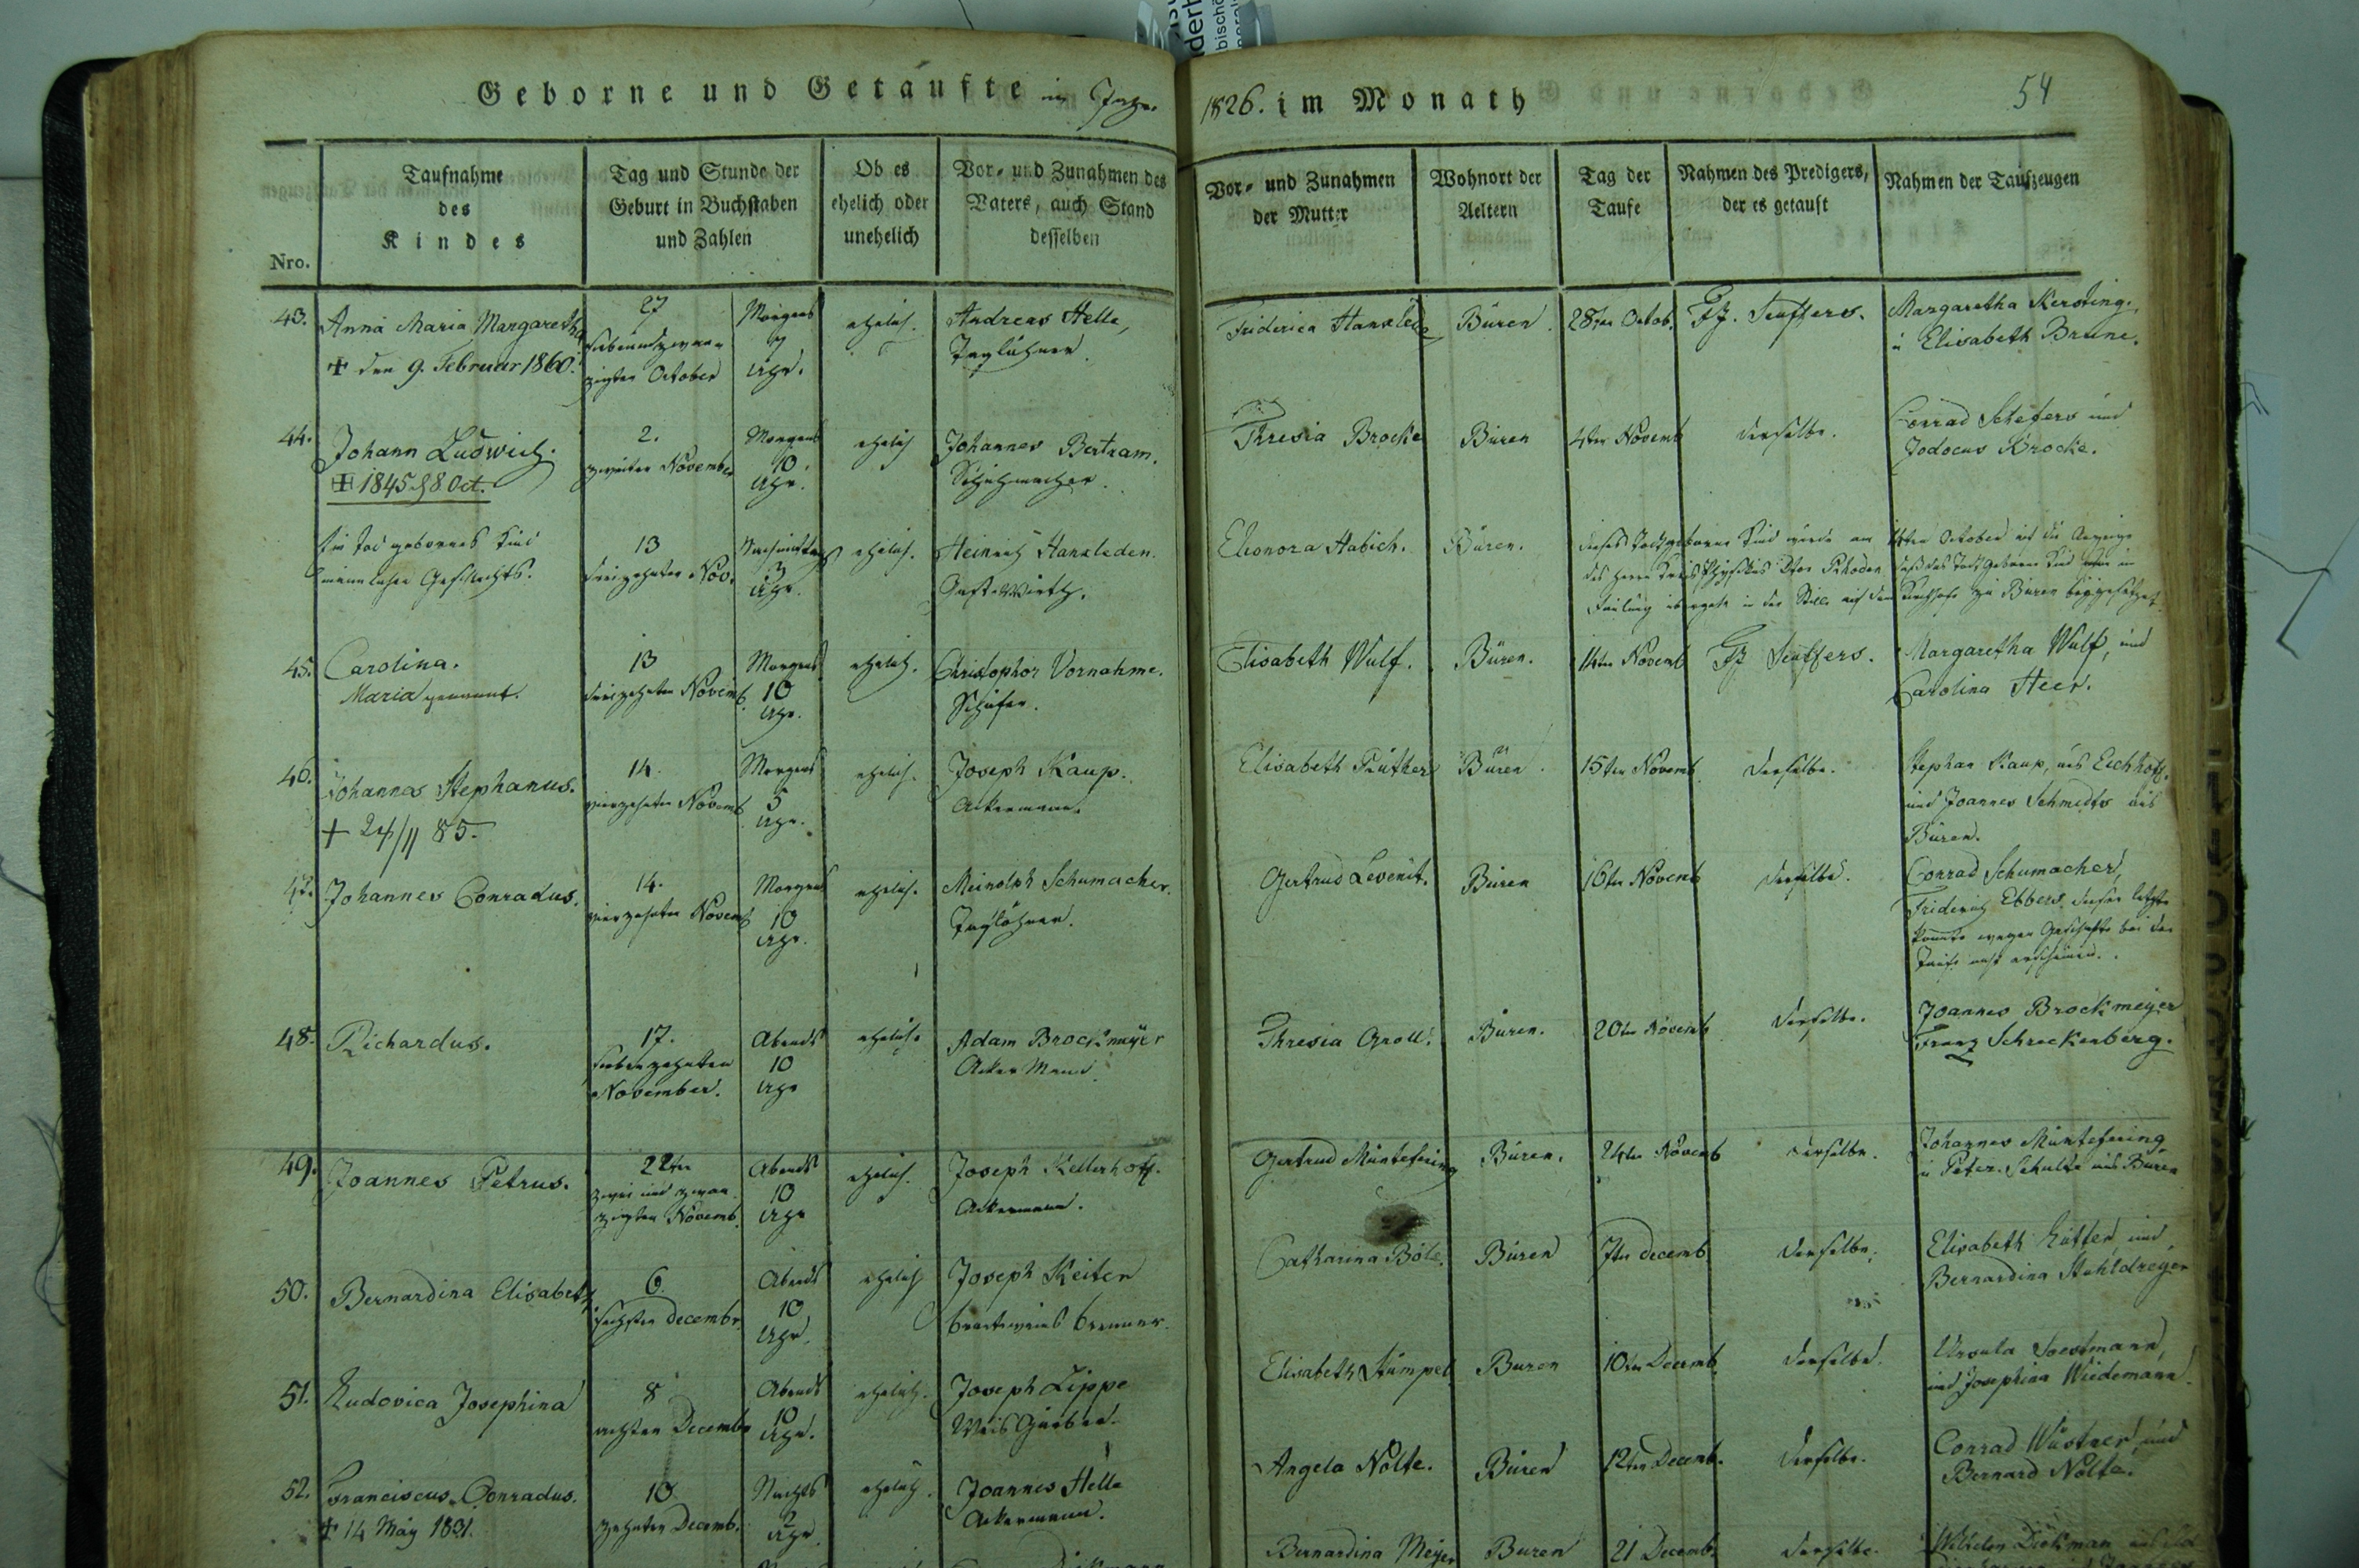 Geborne und Getaufte im Jahr 1826. im Monath
54
Nro.
Taufnahme des Kindes
Tag und Stunde der Geburt in Buchstaben und Zahlen
Ob es ehelich oder unehelich
Vor- und Zunahmen des Vaters, auch Stand desselben
Vor- und Zunahmen der Mutter
Wohnort der Aeltern
Tag der Taufe
Nahmen des Predigers, der es getauft
Nahmen der Taufzeugen
43. Anna Maria Margaretha 27 Morgens ehelich. Andreas Helle, Büren. 28ten Octob. Margaretha Kersting,
siebenundzwan- 7 Taglöhner. u Elisabeth Brune.
† den 9. Februar 1860. zigsten October Uhr.
44. Johann Ludwich. 2. Morgens ehelich Johannes Bertram. Thresia Brocke Büren 4ten Novemb derselbe. Conrad Schefers und
zweiten November 10 Schuhmacher. Jodocus Brocke.
1845 8 Oct. Uhr.
Ein tod gebornes Kind 13 Nachmittags ehelich. Heinrich Hanxleden. Eleonora Habich. Büren. dieses Todtgeborne Kind wurde am 14ten October auf die Anzeige
männlichen Geschlechts. dreizehnten Nov. 3 Gast-Wirth. des Herrn Kreis Physikus daß das Todtgeborne Kind
Uhr. Faulung in der Stille auf dem Kirchhofe zu Büren beigesetzet.
45. Carolina. 13 Morgens ehelich. Christophor Vornahme. Elisabeth Wulf. Büren. 14ten Novemb Margaretha Wulf, und
Maria genannt. dreizehnten Novemb. 10 Schäfer. Carolina Heer.
Uhr.
46. Johannes Stephanus. 14. Morgens ehelich. Joseph Kaup. Elisabeth Büren. 15ten Novemb derselbe. Stephan Kaup, aus Eickhoff.
vierzehnten Novemb 5 Ackermann. und Joannes Schmidts aus
† 24/11 85. Uhr. Büren.
47. Johannes Conradus. 14. Morgens ehelich. Meinolph Schumacher. Gertrud Büren 16ten Novemb derselbe. Conrad Schumacher,
vierzehnten Novemb 10 Taglöhner. Friderich Ebbers dieser letzte
Uhr. konnte wegen Geschäfte bei der
Taufe nicht erscheinen.
48. Richardus. 17. Abends ehelich. Adam Brockmeyer Thresia Groll. Büren. 20ten Novemb derselbe. Joannes Brockmeyer
siebenzehnten 10 Acker Mann. Franz Schreckenberg.
November. Uhr
49. Joannes Petrus. 22ten Abends ehelich. Joseph Kellerhoff. Gertrud Müntefering Büren. 24ten Novemb derselbe. Johannes Müntefering
zwei und zwan- 10 Ackermann. u Peter Schulte aus Büren
zigsten Novemb. Uhr
50. Bernardina Elisabeth 6. Abends ehelich Joseph Keiter Catharina Böle. Büren 7ten decemb. derselbe. Elisabeth und
sechsten decembr. 10 brantweins brenner. Bernardina Stahldreyer
Uhr.
51. Ludovica Josephina 8 Abends ehelich. Joseph Lippe Elisabeth Stümpel Buren 10ten Decemb. derselbe. Ursula Soestmann,
achten Decembr 10 Weis Gärber. und Josephina Wiedemann.
Uhr.
52. Franciscus Conradus. 10 Nachts ehelich. Joannes Helle Angela Nolte. Büren 12ten Decemb. derselbe. Conrad Wüstner und
zehnten Decemb. Ackermann. Bernard Nolte.
† 14 May 1831. Uhr
Bernardina Meyer Buren 21 Decemb. derselbe. Wilhelm Diekman